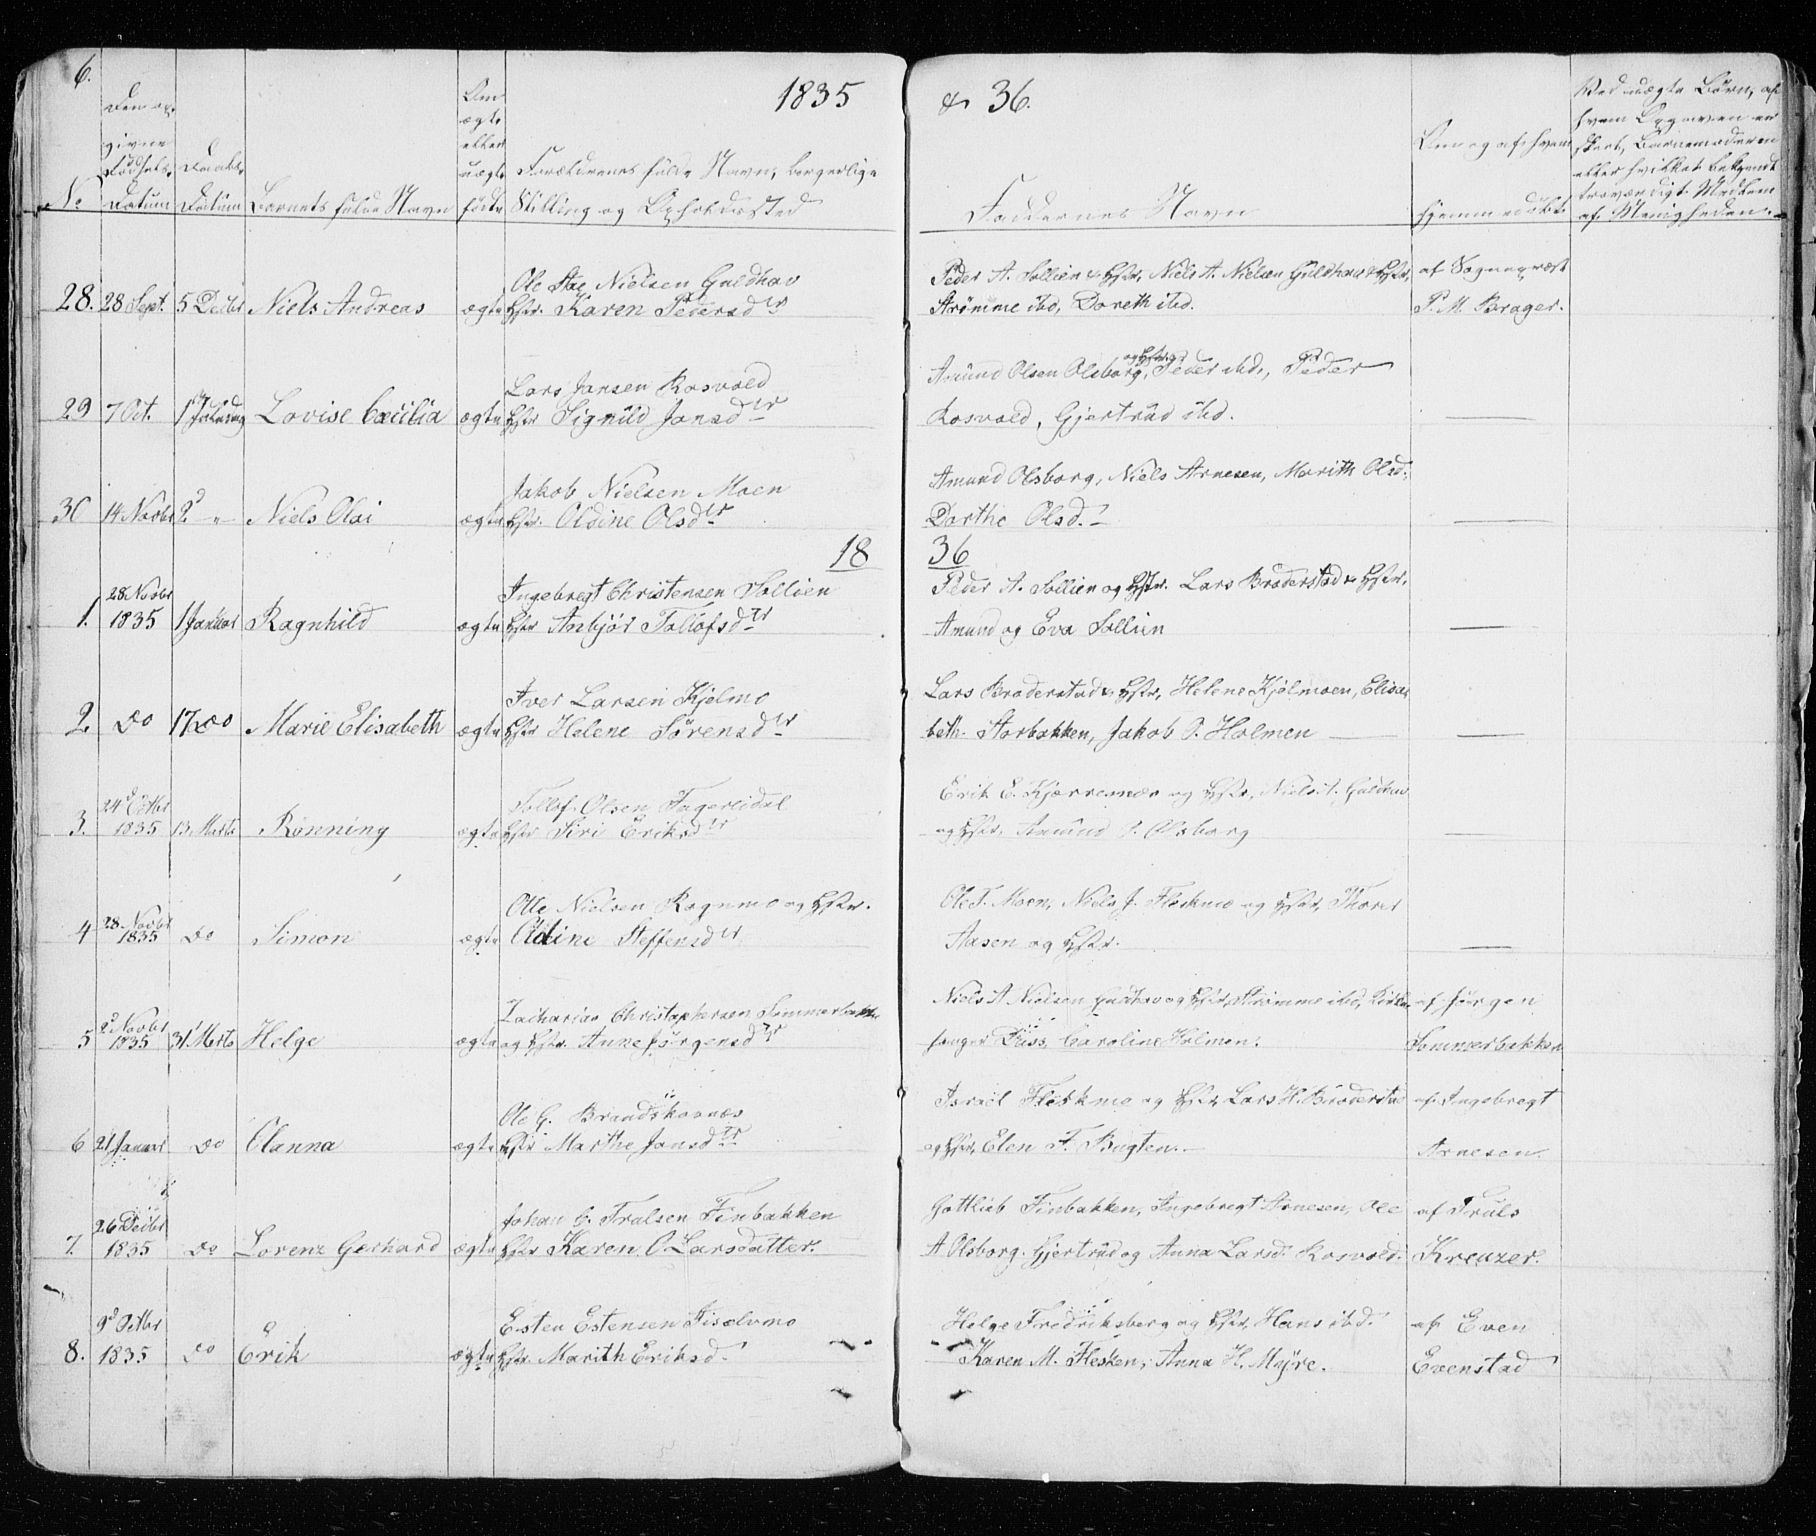 6.
1835 & 36.
No
Den op-
givne
Fødsels-
Datum
Daabs-
Datum
Barnets fulde Navn
Om
ægte
eller
uægte
fødte
Forældrenes fulde Navn, borgerlige
Stilling og Opholdssted
Faddernes Navn
Om og af hvem
hjemmedøbt.
Ved uægte Børn, af
hvem Opgaven er
skeet, Barnemoderen
eller hvilket bekjendt
troværdigt Medlem
af Menigheden.
28. 28 Sept. 5 Decbr Niels Andreas ægte
Ole Nielsen Guldhav
Hstr. Karen Pedersdtr
Peder A. Sollien & Hstr, Niels A. Nielsen Guldhav & Hstr,
Strømme ibd, Doreth ibd.
af Sognepræst
P. M. Brager.
29 7 Oct. 1 Juledag Lovise Cæcilia ægte
Lars Jansen Rosvold
Hstr Signild Jansdtr
og Hstr
Amund Olsen Olsborg, Peder ibd, Peder
Rosvold, Gjertrud ibd.
30 14 Novbr 2d " Niels Olai ægte
Jakob Nielsen Moen
Hstr. Oldine Olsdtr
Amund Olsborg, Niels Arnesen, Marith Olsd.
Dorthe Olsd.
18 36
1. 28 Novbr
1835 1 Januar Ragnhild ægte
Ingebregt Christensen Sollien
Hstr Anbjør Tollofsdtr
Peder A. Sollien og Hstr. Lars Broderstad & Hstr.
Amund og Eva Sollien
2. Do 17 Do Marie Elisabeth ægte
Iver Larsen Kjelmo
Hstr Helene Sørensdtr
Lars Broderstad & Hstr, Helene Kjølmoen, Elisa-
beth Storbakken, Jakob P. Holmen
3. 24d Octbr
1835 13 Marts Rønning ægte
Tollof Olsen Fagerlidal
Hstr Siri Eriksdtr
Erik E. Kjærresnæs og Hstr, Niels A. Guldhav
og Hstr, Amund P. Olsborg
4 28 Novbr
1835 Do Simon ægte
Olle Nielsen Rognmo og Hstr.
Oldine Steffensdtr
Ole T. Moen, Niels J. Fleskmo og Hstr, Thorer
Aasen og Hstr.
5 2d Novbr
1835 31 Marts Helge ægte
Zacharias Christophersen Sommerbakken
og Hstr. Anne Jørgensdtr
Niels A Nielsen Guldhav og Hstr, Strømme ibd, Kirke-
sanger Friis, Caroline Holmen.
af Jørgen
Sommerbakken
6 21 Januar Do Olanna ægte
Ole G. Brandskovnæs
Hstr Marthe Jansdtr
Israel Fleskmo og Hstr, Lars H. Broderstad
og Hstr, Elen F. Bugten.
af Ingebregt
Arnesen.
7. 26 Decbr
1835 Do Lorenz Gerhard ægte
Johan C. Tralsen Finbakken
Hstr Karen O. Larsdatter.
Gottlieb Finbakken, Ingebregt Arnesen, Ole
A Olsborg. Gjertrud og Anna Larsd. Rosvold.
af Truls
Kreuzer.
8. 9d Octbr
1835 Do Erik ægte
Esten Estensen Fiselvmo
Hstr. Marith Eriksd.
Helge Fredriksberg og Hstr, Hans ibd.
Karen M. Flesken, Anna H. Myre.
af Even
Evenstad